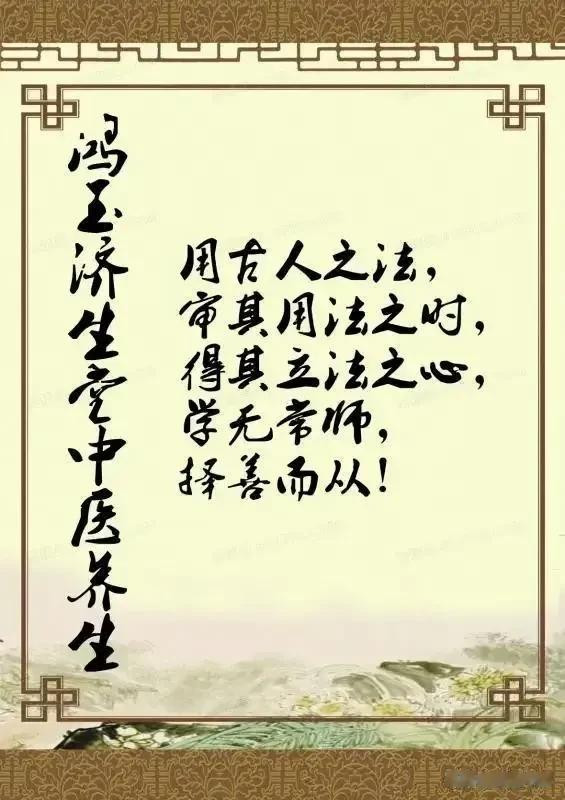 鸿玉济生堂中医养生
用古人之法，
审其用法之时，
得其立法之心，
学无常师，
择善而从！